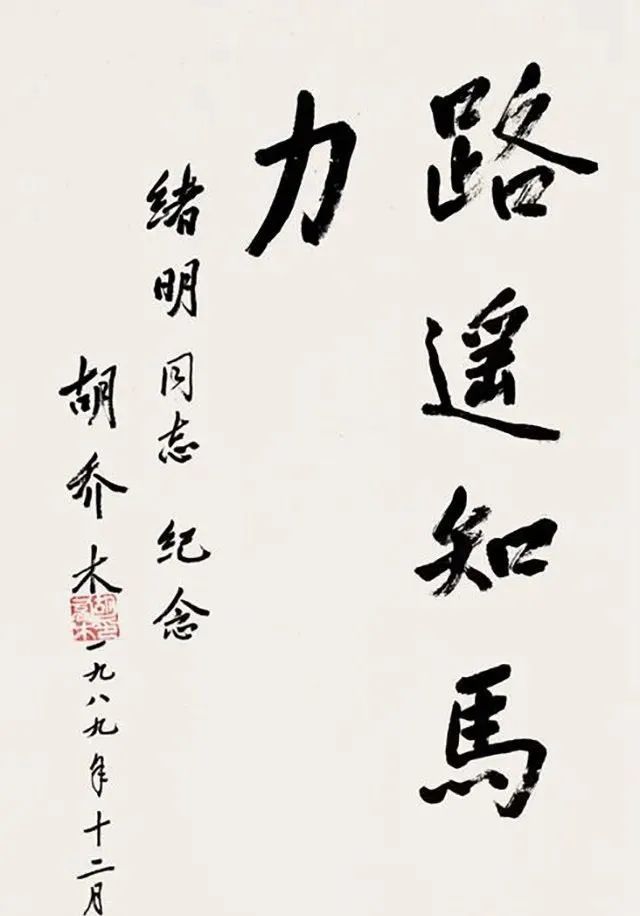 路遥知馬
力
绪明同志纪念
胡乔木
一九八九年十二月